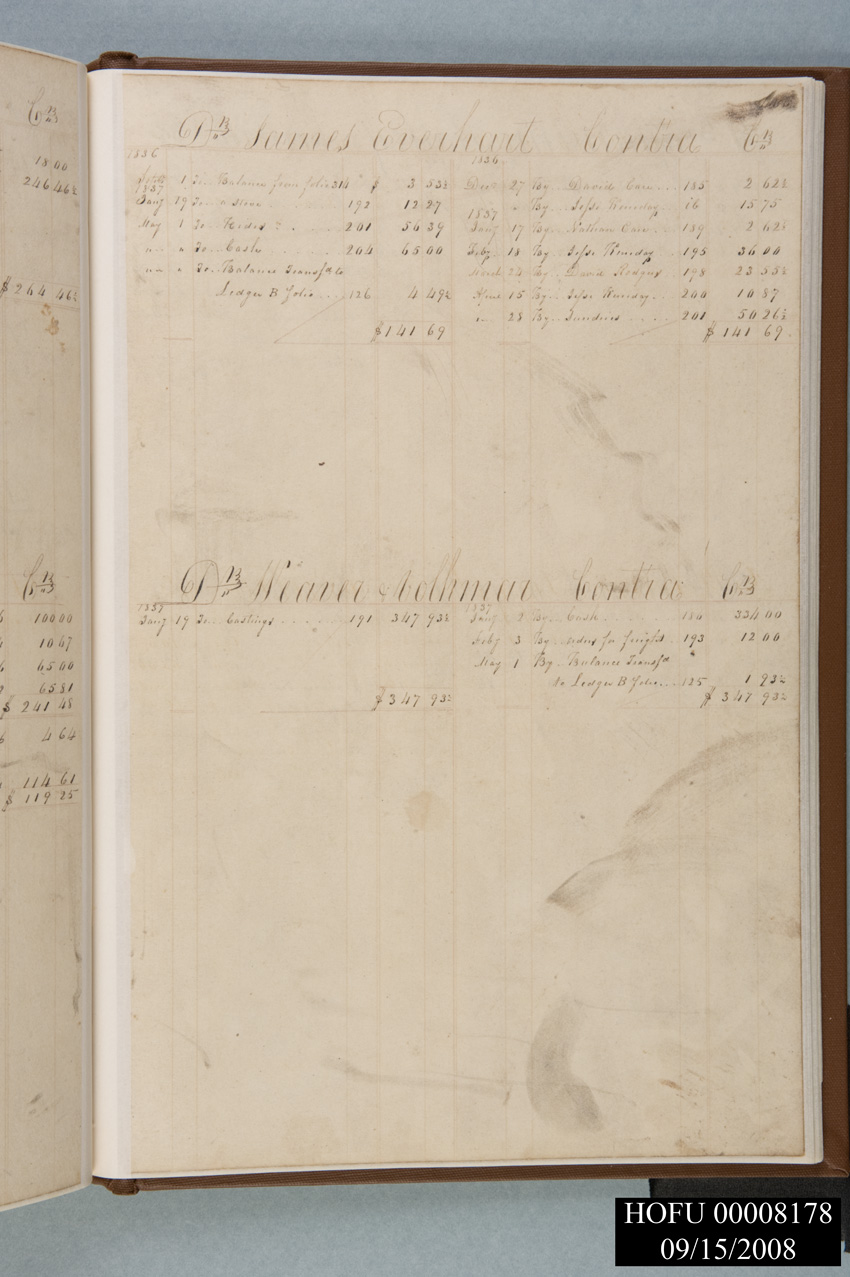 Cr
18 00
246 46½
$264 46½
Cr
100 00
10 67
65 00
65 81
$241 48
4 64
114 61
$119 25
Dr James Everhart Contra Cr
1836 1836
1 To Balance from folio 314 $ 3 53½ Decr 27 By David Care 185 2 62½
1837
Jany 19 To a Stove 192 12 27 " By Jesse ib 15 75
1837
May 1 To Rides 201 56 39 Jany 17 By Nathan Care 189 2 62½
" " To Cash 204 65 00 Feby 18 By Jesse 195 36 00
" " To Balance Transfd to March 24 By David Rodgers 198 23 55½
Ledger B folio 126 4 49½ April 15 By Jesse 200 10 87
" 28 By Sundries 201 50 26½
$141 69 $141 69
Dr Weaver & Volkmar Contra Cr
1837 1837
Jany 19 To Castings 191 347 93½ Jany 2 By Cash 186 334 00
Feby 3 By for freight 193 12 00
May 1 By Balance Transfd
to Ledger B folio 125 1 93½
$347 93½ $347 93½
HOFU 00008178
09/15/2008